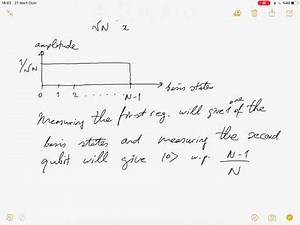 18:03 21 Mart Cum
%40
√N x
amplitude
1/√N
basis states
0 1 2 N-1
Measuring the first reg. will give one of the
basis states and measuring the second
qubit will give |0> w.p. N-1/N